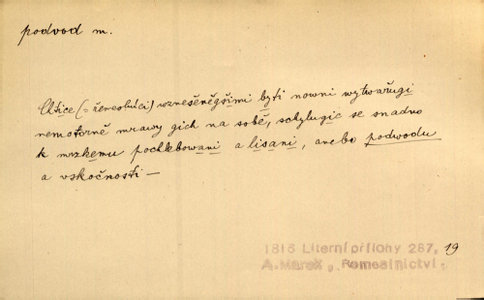 podvod m.
Chtice (= řemeslníci) wznešěněgšjmi býti nowni wytwařugi
nemotorně mrawy gich na sobě, schylugic se snadno
k mrzkemu pochlebowani a lisani, anebo podwodu
a vskočnosti —
1818 Literní přílohy 287, 19
A. Marek, Romeslnictví.